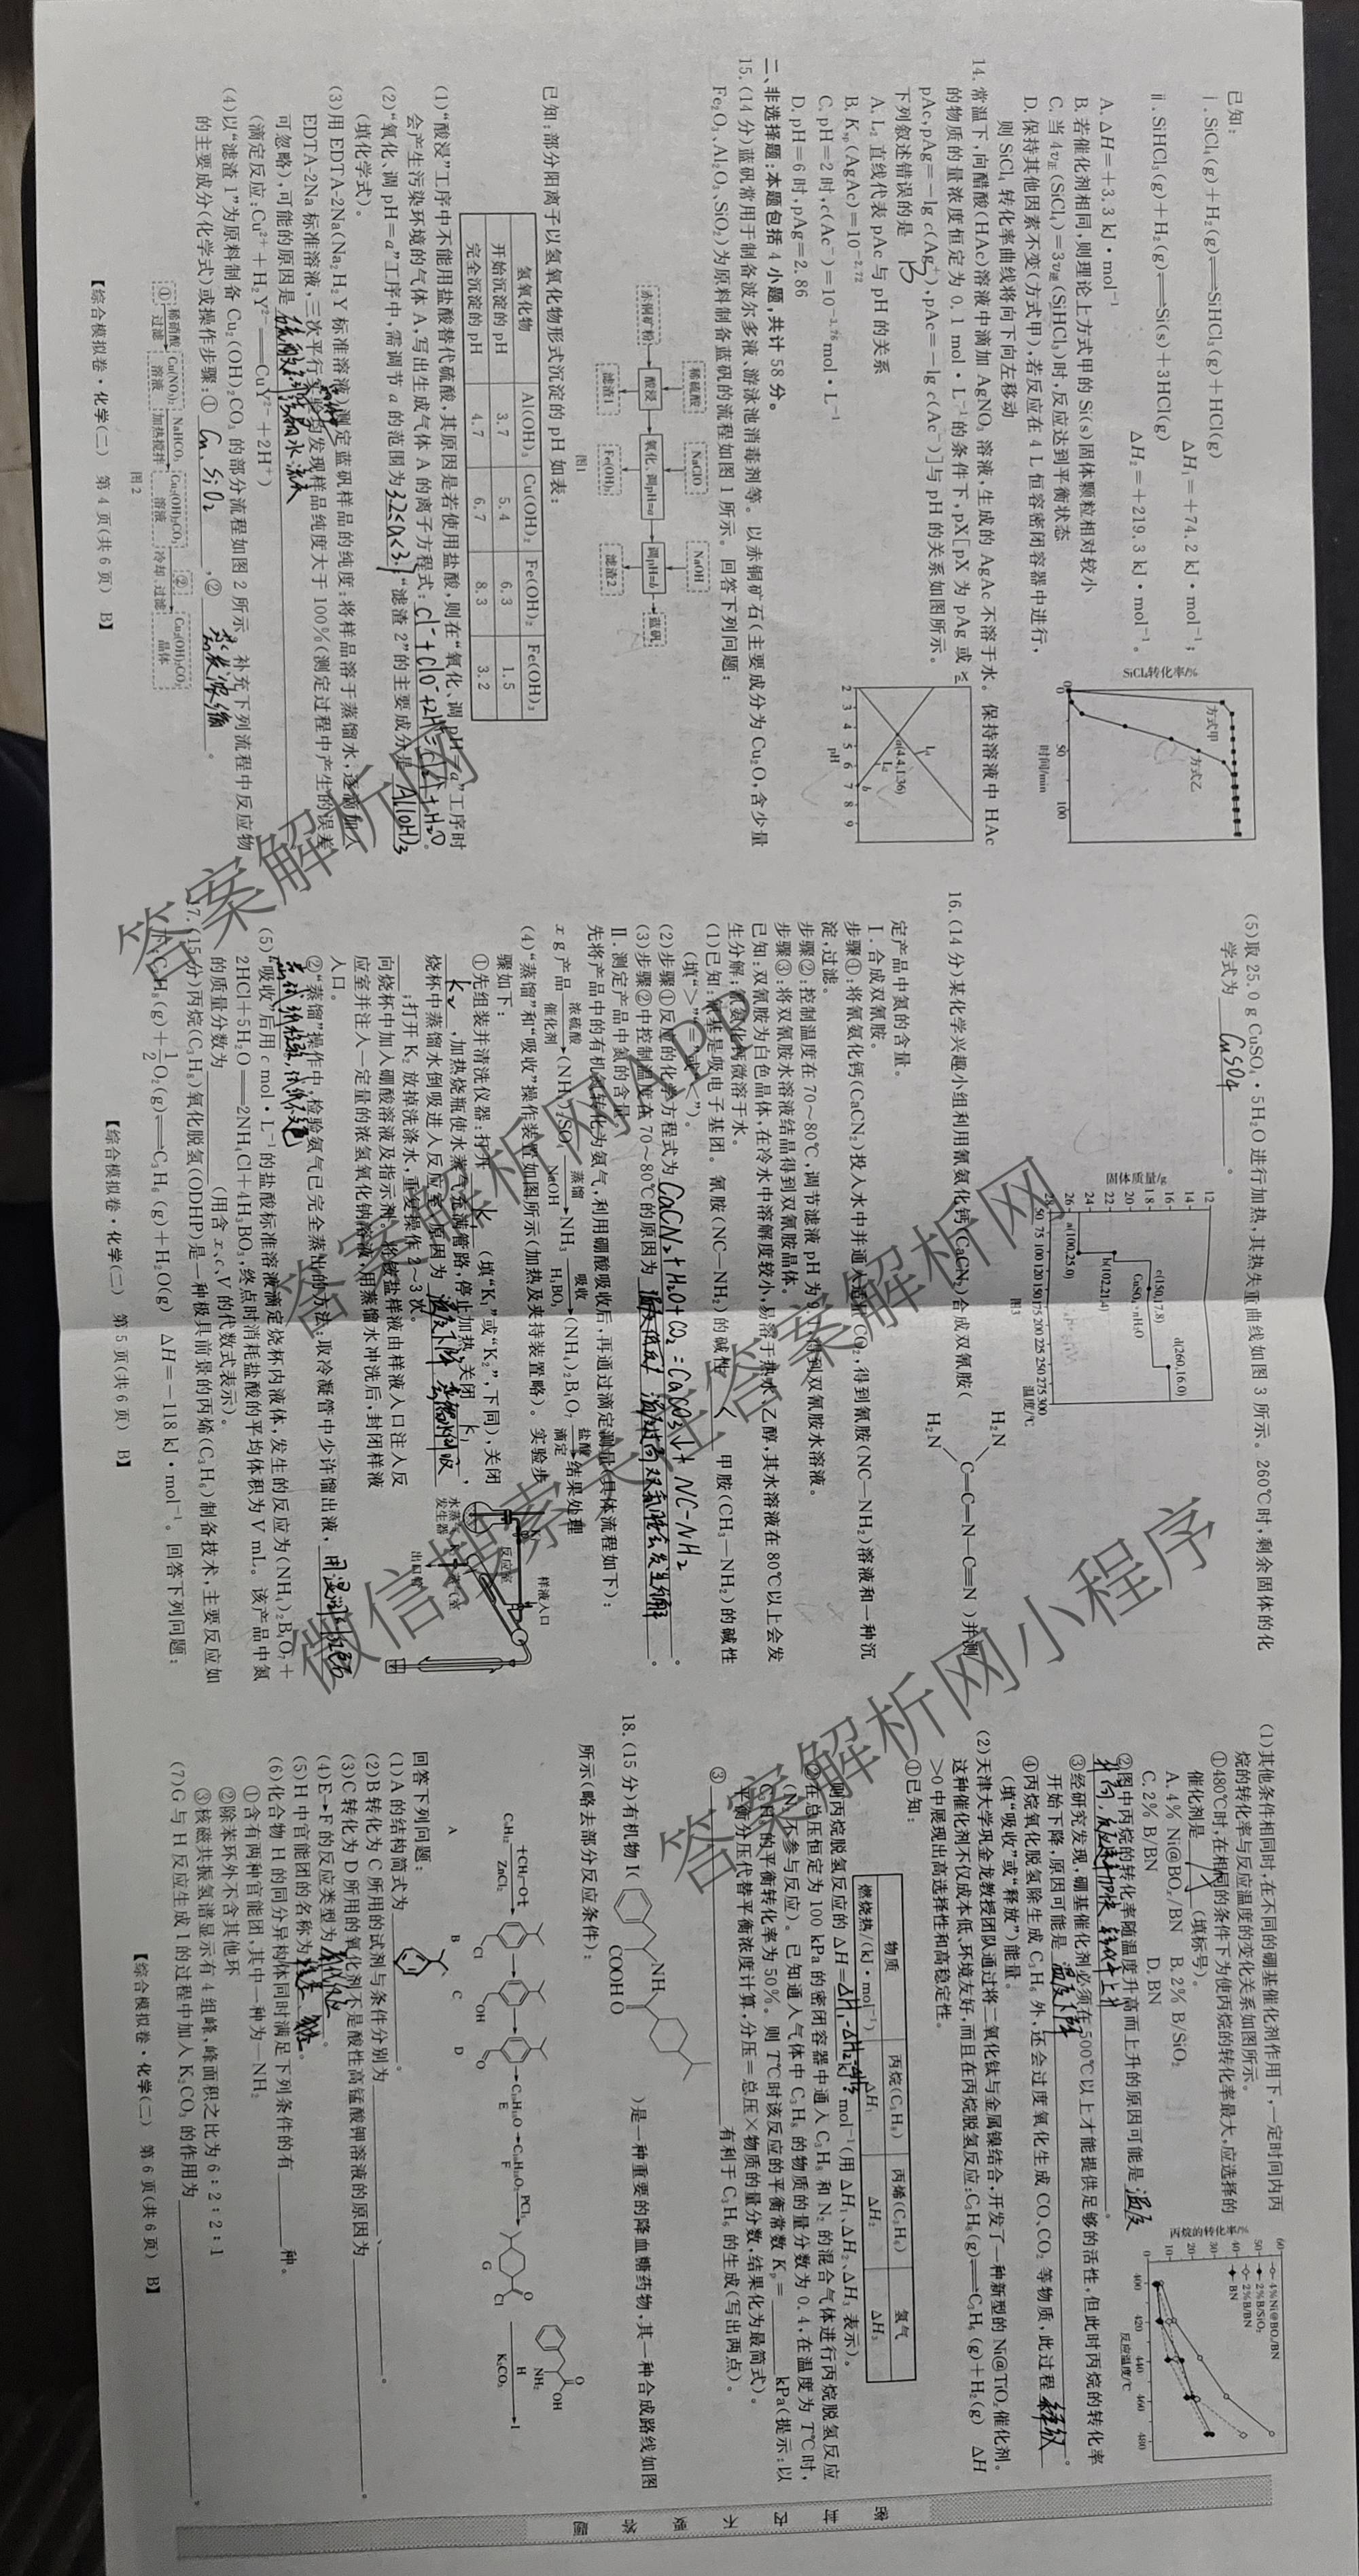 已知:
ⅰ. SiCl₄(g)+H₂(g)⇌SiHCl₃(g)+HCl(g)
ΔH₁=+74.2 kJ·mol⁻¹;
ⅱ. SiHCl₃(g)+H₂(g)⇌Si(s)+3HCl(g)
ΔH₂=+219.3 kJ·mol⁻¹。
A. ΔH=+3.3 kJ·mol⁻¹
B. 若催化剂相同,则理论上方式甲的 Si(s)固体颗粒相对较小
C. 当 4v正(SiCl₄)=3v逆(SiHCl₃)时,反应达到平衡状态
D. 保持其他因素不变(方式甲),若反应在 4 L 恒容密闭容器中进行,
则 SiCl₄ 转化率曲线将向下向左移动
SiCl₄转化率/%
方式甲
方式乙
0 50 100
时间/min
14. 常温下,向醋酸(HAc)溶液中滴加 AgNO₃ 溶液,生成的 AgAc 不溶于水。保持溶液中 HAc
的物质的量浓度恒定为 0.1 mol·L⁻¹的条件下,pX[pX 为 pAg 或
pAc,pAg=-lg c(Ag⁺),pAc=-lg c(Ac⁻)]与 pH 的关系如图所示。
下列叙述错误的是 B
A. L₂ 直线代表 pAc 与 pH 的关系
B. Ksp(AgAc)=10⁻²·⁷²
C. pH=2 时,c(Ac⁻)=10⁻³·⁷⁶ mol·L⁻¹
D. pH=6 时,pAg=2.86
L₁
a(4.4,1.36)
L₂
b
2 3 4 5 6 7 8 9
pH
二、非选择题:本题包括 4 小题,共计 58 分。
15. (14 分)蓝矾常用于制备波尔多液、游泳池消毒剂等。以赤铜矿石(主要成分为 Cu₂O,含少量
Fe₂O₃、Al₂O₃、SiO₂)为原料制备蓝矾的流程如图 1 所示。回答下列问题:
稀硫酸 NaClO NaOH
赤铜矿粉 酸浸 氧化、调pH=a 调pH=b 蓝矾
滤渣1 Fe(OH)₃ 滤渣2
图1
已知:部分阳离子以氢氧化物形式沉淀的 pH 如表:
氢氧化物 Al(OH)₃ Cu(OH)₂ Fe(OH)₂ Fe(OH)₃
开始沉淀的 pH 3.7 5.4 6.3 1.5
完全沉淀的 pH 4.7 6.7 8.3 3.2
(1)“酸浸”工序中不能用盐酸替代硫酸,其原因是若使用盐酸,则在“氧化、调 pH=a”工序时
会产生污染环境的气体 A,写出生成气体 A 的离子方程式: Cl⁻+ClO⁻+2H⁺=Cl₂↑+H₂O。
(2)“氧化、调 pH=a”工序中,需调节 a 的范围为 3.2≤a<3.7;“滤渣 2”的主要成分是 Al(OH)₃
(填化学式)。
(3)用 EDTA-2Na(Na₂H₂Y 标准溶液)测定蓝矾样品的纯度:将样品溶于蒸馏水,逐滴加入
EDTA-2Na 标准溶液,三次平行实验均发现样品纯度大于 100%(测定过程中产生的误差
可忽略),可能的原因是
(滴定反应:Cu²⁺+H₂Y²⁻═CuY²⁻+2H⁺)
(4)以“滤渣 1”为原料制备 Cu₂(OH)₂CO₃ 的部分流程如图 2 所示。补充下列流程中反应物
的主要成分(化学式)或操作步骤:① Cu、SiO₂ ,② 蒸发浓缩 。
① 稀硝酸 过滤 Cu(NO₃)₂ 溶液 NaHCO₃ 加热搅拌 Cu₂(OH)₂CO₃ 溶液 ② 冷却、过滤 Cu₂(OH)₂CO₃ 晶体
图 2
【综合模拟卷·化学(二) 第 4 页(共 6 页) B】
(5)取 25.0 g CuSO₄·5H₂O 进行加热,其热失重曲线如图 3 所示。260℃时,剩余固体的化
学式为 CuSO₄ 。
固体质量/g
28 26 24 22 20 18 16 14 12
a(100,25.0)
b(102,21.4)
CuSO₄·nH₂O
c(150,17.8)
d(260,16.0)
50 75 100 120 150 175 200 225 250 275 300
温度/℃
图3
16. (14 分)某化学兴趣小组利用氰氨化钙(CaCN₂)合成双氰胺( H₂N H₂N C═N—C≡N )并测
定产品中氮的含量。
Ⅰ. 合成双氰胺。
步骤①:将氰氨化钙(CaCN₂)投入水中并通入适量 CO₂,得到氰胺(NC—NH₂)溶液和一种沉
淀,过滤。
步骤②:控制温度在 70~80℃,调节滤液 pH 为 9,得到双氰胺水溶液。
步骤③:将双氰胺水溶液结晶得到双氰胺晶体。
已知:双氰胺为白色晶体,在冷水中溶解度较小,易溶于热水、乙醇,其水溶液在 80℃以上会发
生分解;氰氨化钙微溶于水。
(1)已知:氰基是吸电子基团。氰胺(NC—NH₂)的碱性 < 甲胺(CH₃—NH₂)的碱性
(填“>”“=”或“<”)。
(2)步骤①反应的化学方程式为 CaCN₂+H₂O+CO₂=CaCO₃↓+NC-NH₂ 。
(3)步骤②中控制温度在 70~80℃的原因为 。
Ⅱ. 测定产品中氮的含量。
先将产品中的有机氮转化为氨气,利用硼酸吸收后,再通过滴定测量(具体流程如下):
x g 产品 浓硫酸 催化剂 (NH₄)₂SO₄ 蒸馏 NaOH NH₃ 吸收 H₃BO₃ (NH₄)₂B₄O₇ 盐酸 滴定 结果处理
(4)“蒸馏”和“吸收”操作装置如图所示(加热及夹持装置略)。实验步
骤如下:
①先组装并清洗仪器:打开 k₁ (填“K₁”或“K₂”,下同),关闭
k₂ ,加热烧瓶使水蒸气充满管路,停止加热,关闭 k₁ ,
烧杯中蒸馏水倒吸进入反应室,原因为
;打开 K₂ 放掉洗涤水,重复操作 2~3 次。
向烧杯中加入硼酸溶液及指示剂。将铵盐样液由样液入口注入反
应室并注入一定量的浓氢氧化钠溶液,用蒸馏水冲洗后,封闭样液
入口。
样液入口
反应室
水蒸气发生器
出口
②“蒸馏”操作中,检验氨气已完全蒸出的方法:取冷凝管中少许馏出液,
。
(5)“吸收”后用 c mol·L⁻¹的盐酸标准溶液滴定烧杯内液体,发生的反应为(NH₄)₂B₄O₇+
2HCl+5H₂O═2NH₄Cl+4H₃BO₃,终点时消耗盐酸的平均体积为 V mL。该产品中氮
的质量分数为 (用含 x、c、V 的代数式表示)。
17. (15 分)丙烷(C₃H₈)氧化脱氢(ODHP)是一种极具前景的丙烯(C₃H₆)制备技术,主要反应如
下:C₃H₈(g)+1/2O₂(g)⇌C₃H₆(g)+H₂O(g) ΔH=-118 kJ·mol⁻¹。回答下列问题:
【综合模拟卷·化学(二) 第 5 页(共 6 页) B】
(1)其他条件相同时,在不同的硼基催化剂作用下,一定时间内丙
烷的转化率与反应温度的变化关系如图所示。
①480℃时,在相同的条件下为使丙烷的转化率最大,应选择的
催化剂是 A (填标号)。
A. 4% Ni@BOₓ/BN B. 2% B/SiO₂
C. 2% B/BN D. BN
丙烷的转化率/%
0 10 20 30 40 50 60
4%Ni@BOₓ/BN
2%B/SiO₂
2%B/BN
BN
400 420 440 460 480
反应温度/℃
②图中丙烷的转化率随温度升高而上升的原因可能是 温度
升高,反应速率加快,转化率上升 。
③经研究发现,硼基催化剂必须在 500℃以上才能提供足够的活性,但此时丙烷的转化率
开始下降,原因可能是 。
④丙烷氧化脱氢除生成 C₃H₆ 外,还会过度氧化生成 CO、CO₂ 等物质,此过程 释放
(填“吸收”或“释放”)能量。
(2)天津大学巩金龙教授团队通过将二氧化钛与金属镍结合,开发了一种新型的 Ni@TiOₓ催化剂。
这种催化剂不仅成本低、环境友好,而且在丙烷脱氢反应:C₃H₈(g)⇌C₃H₆(g)+H₂(g) ΔH
>0 中展现出高选择性和高稳定性。
①已知:
物质 丙烷(C₃H₈) 丙烯(C₃H₆) 氢气
燃烧热/(kJ·mol⁻¹) ΔH₁ ΔH₂ ΔH₃
则丙烷脱氢反应的 ΔH= ΔH₁-ΔH₂-ΔH₃ kJ·mol⁻¹(用 ΔH₁、ΔH₂、ΔH₃ 表示)。
②在总压恒定为 100 kPa 的密闭容器中通入 C₃H₈ 和 N₂ 的混合气体进行丙烷脱氢反应
(N₂ 不参与反应)。已知通入气体中 C₃H₈ 的物质的量分数为 0.4,在温度为 T℃时,
C₃H₈ 的平衡转化率为 50%。则 T℃时该反应的平衡常数 Kp= kPa(提示:以
平衡分压代替平衡浓度计算,分压=总压×物质的量分数,结果化为最简式)。
③ 有利于 C₃H₆ 的生成(写出两点)。
18. (15 分)有机物 I( NH COOH O )是一种重要的降血糖药物,其一种合成路线如图
所示(略去部分反应条件):
C₉H₁₂ A ZnCl₂ Cl B OH C O D C₁₀H₁₈O E C₁₀H₁₈O₂ F PCl₅ O Cl G O OH NH₂ H K₂CO₃ I
回答下列问题:
(1)A 的结构简式为 。
(2)B 转化为 C 所用的试剂与条件分别为 、 。
(3)C 转化为 D 所用的氧化剂不是酸性高锰酸钾溶液的原因为 。
(4)E→F 的反应类型为 氧化反应 。
(5)H 中官能团的名称为 羧基、氨基 。
(6)化合物 H 的同分异构体同时满足下列条件的有 种。
①含有两种官能团,其中一种为—NH₂
②除苯环外不含其他环
③核磁共振氢谱显示有 4 组峰,峰面积之比为 6∶2∶2∶1
(7)G 与 H 反应生成 I 的过程中加入 K₂CO₃ 的作用为 。
【综合模拟卷·化学(二) 第 6 页(共 6 页) B】
答案解析网
答案解析网APP
微信搜索关注答案解析网
答案解析网小程序